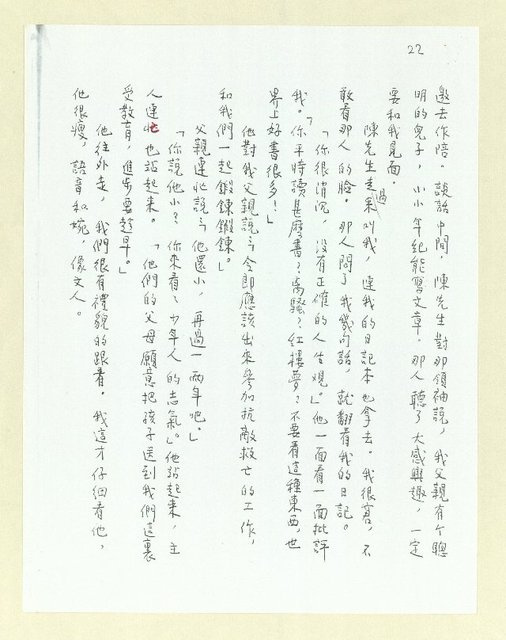 22
邀去作陪。談話中間，陳先生對那領袖說，我父親有个聰
明的兒子，小小年紀能寫文章。那人聽了大感興趣，一定
要和我見面。
陳先生走過來叫我，連我的日記本也拿去。我很窘，不
敢看那人的臉。那人問了我幾句話，就翻看我的日記。
「你很消沉，沒有正確的人生觀。」他一面看一面批評
我。「你平時讀甚麼書？离騷？紅樓夢？不要看這種東西，世
界上好書很多！」
他對我父親說：令郎應該出來參加抗敵救亡的工作，
和我們一起鍛鍊鍛鍊。
父親連忙說：他還小，再過一兩年吧。」
「你說他小？你來看看少年人的志氣。」他站起來，主
人連忙也站起來。「他們的父母願意把孩子送到我們這裏
受教育，進步要趁早。」
他往外走，我們很有禮貌的跟着。我這才仔細看他，
他很瘦，語音和婉，像文人。